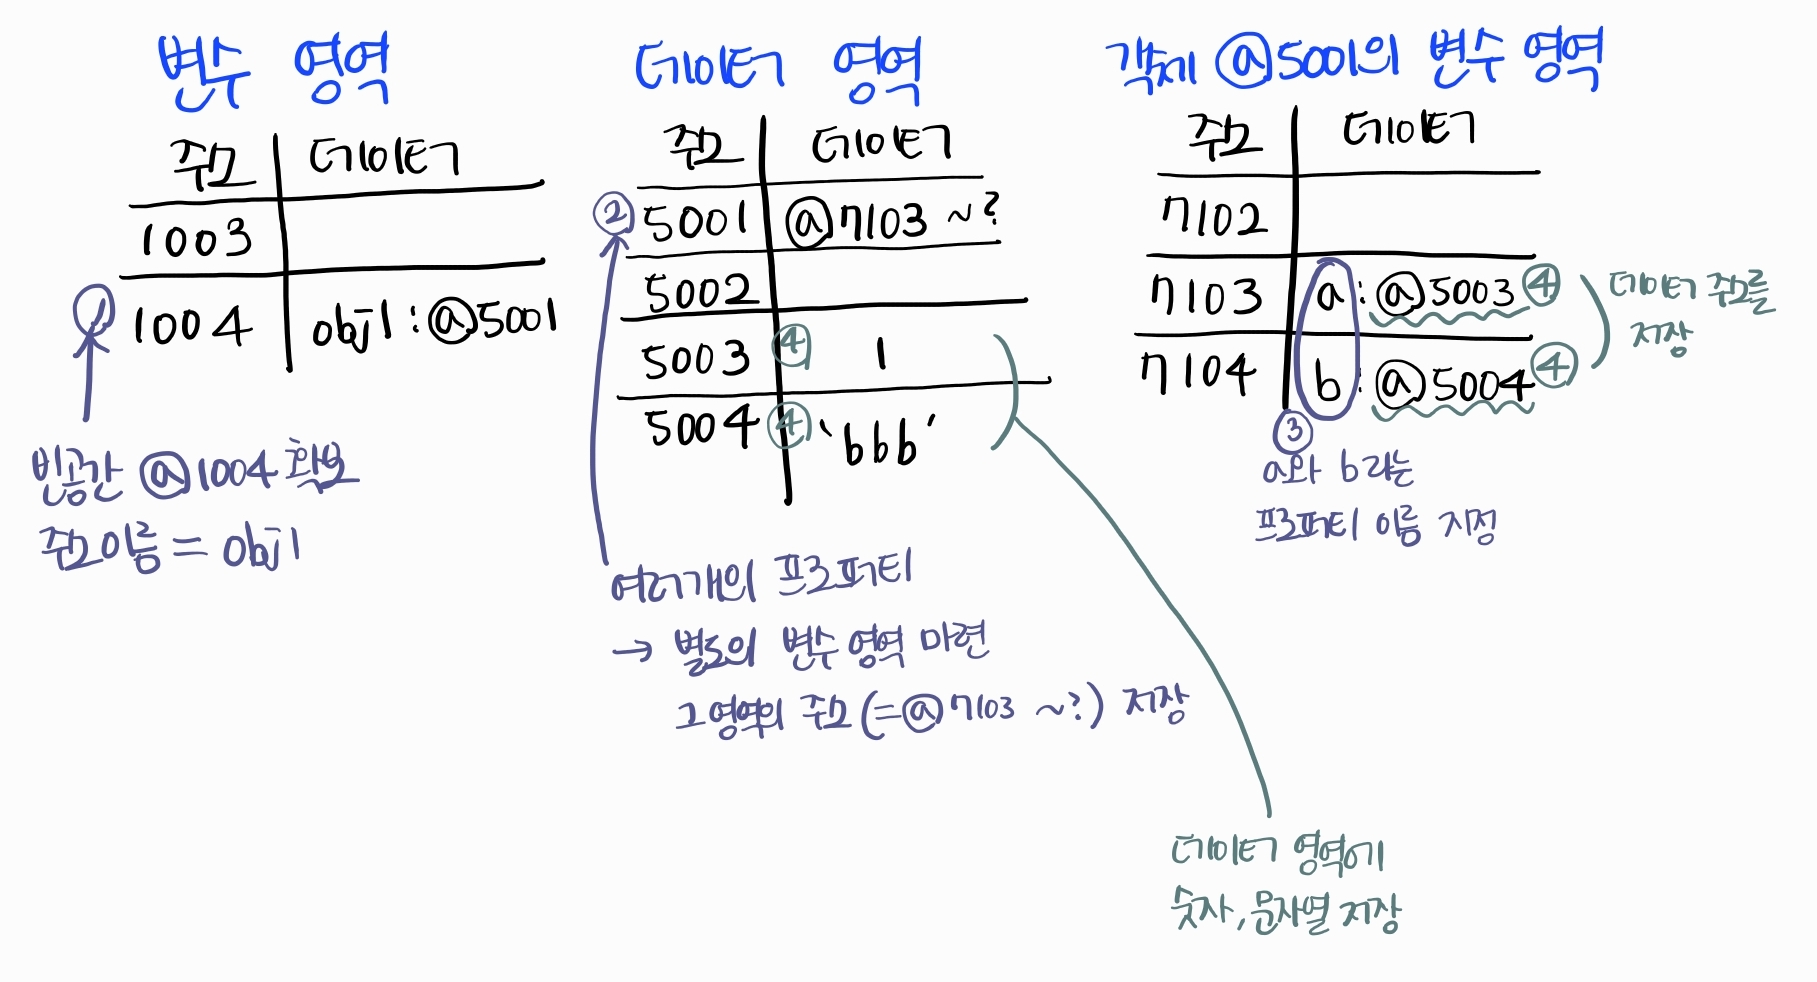 변수 영역
주소 데이터
1003
① 1004 obj1 : @5001
빈공간 @1004 확보
주소이름 = obj1
데이터 영역
주소 데이터
② 5001 @7103 ~?
5002
5003 ④ 1
5004 ④ 'bbb'
여러개의 프로퍼티
→ 별도의 변수 영역 마련
그 영역의 주소 (=@7103 ~?) 저장
객체 @5001의 변수 영역
주소 데이터
7102
7103 a : @5003 ④
7104 b : @5004 ④
데이터 주소를
저장
③
a와 b 라는
프로퍼티 이름 지정
데이터 영역에
숫자, 문자열 저장